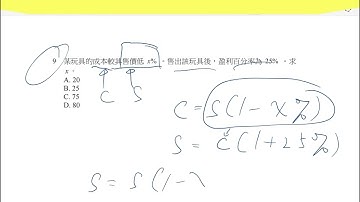 9 某玩具的成本較其售價低 x%。售出該玩具後,盈利百分率為 25%。求
x。
A. 20
B. 25
C. 75
D. 80
C S
C = S(1-x%)
S = C(1+25%)
S = S(1-